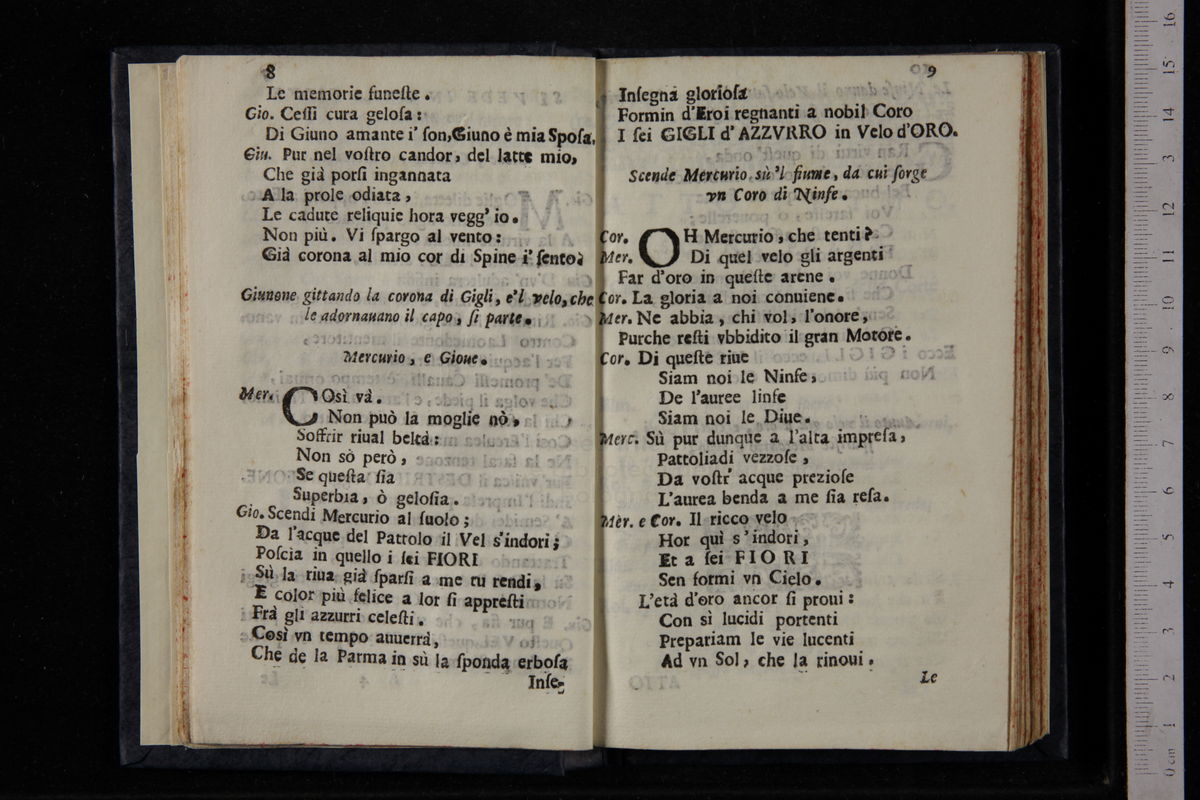 8
Le memorie funeſte.
Gio. Ceſſi cura geloſa:
Di Giuno amante i' ſon, Giuno è mia Spoſa,
Giu. Pur nel voſtro candor, del latte mio,
Che già porſi ingannata
A la prole odiata,
Le cadute reliquie hora vegg' io.
Non più. Vi ſpargo al vento:
Già corona al mio cor di Spine i' ſento.
Giunone gittando la corona di Gigli, e'l velo, che
le adornauano il capo, ſi parte.
Mercurio, e Gioue.
Mer. COsì và.
Non può la moglie nò,
Soffrir riual beltà:
Non sò però,
Se queſta ſia
Superbia, ò geloſia.
Gio. Scendi Mercurio al ſuolo;
Da l'acque del Pattolo il Vel s'indori;
Poſcia in quello i ſei FIORI
Sù la riua già ſparſi a me tu rendi,
E color più felice a lor ſi appreſti
Frà gli azzurri celeſti.
Così vn tempo auuerrà,
Che de la Parma in sù la ſponda erboſa
Inſe-
9
Inſegna glorioſa
Formin d'Eroi regnanti a nobil Coro
I ſei GIGLI d'AZZVRRO in Velo d'ORO.
Scende Mercurio sù 'l fiume, da cui ſorge
vn Coro di Ninfe.
Cor. OH Mercurio, che tenti?
Mer. Di quel velo gli argenti
Far d'oro in queſte arene.
Cor. La gloria a noi conuiene.
Mer. Ne abbia, chi vol, l'onore,
Purche reſti vbbidito il gran Motore.
Cor. Di queſte riue
Siam noi le Ninfe,
De l'auree linfe
Siam noi le Diue.
Merc. Sù pur dunque a l'alta impreſa,
Pattoliadi vezzoſe,
Da voſtr' acque prezioſe
L'aurea benda a me ſia reſa.
Mèr. e Cor. Il ricco velo
Hor quì s' indori,
Et a ſei FIORI
Sen formi vn Cielo.
L'età d'oro ancor ſi proui:
Con sì lucidi portenti
Prepariam le vie lucenti
Ad vn Sol, che la rinoui.
Le
0 cm 1 2 3 4 5 6 7 8 9 10 11 12 13 14 15 16